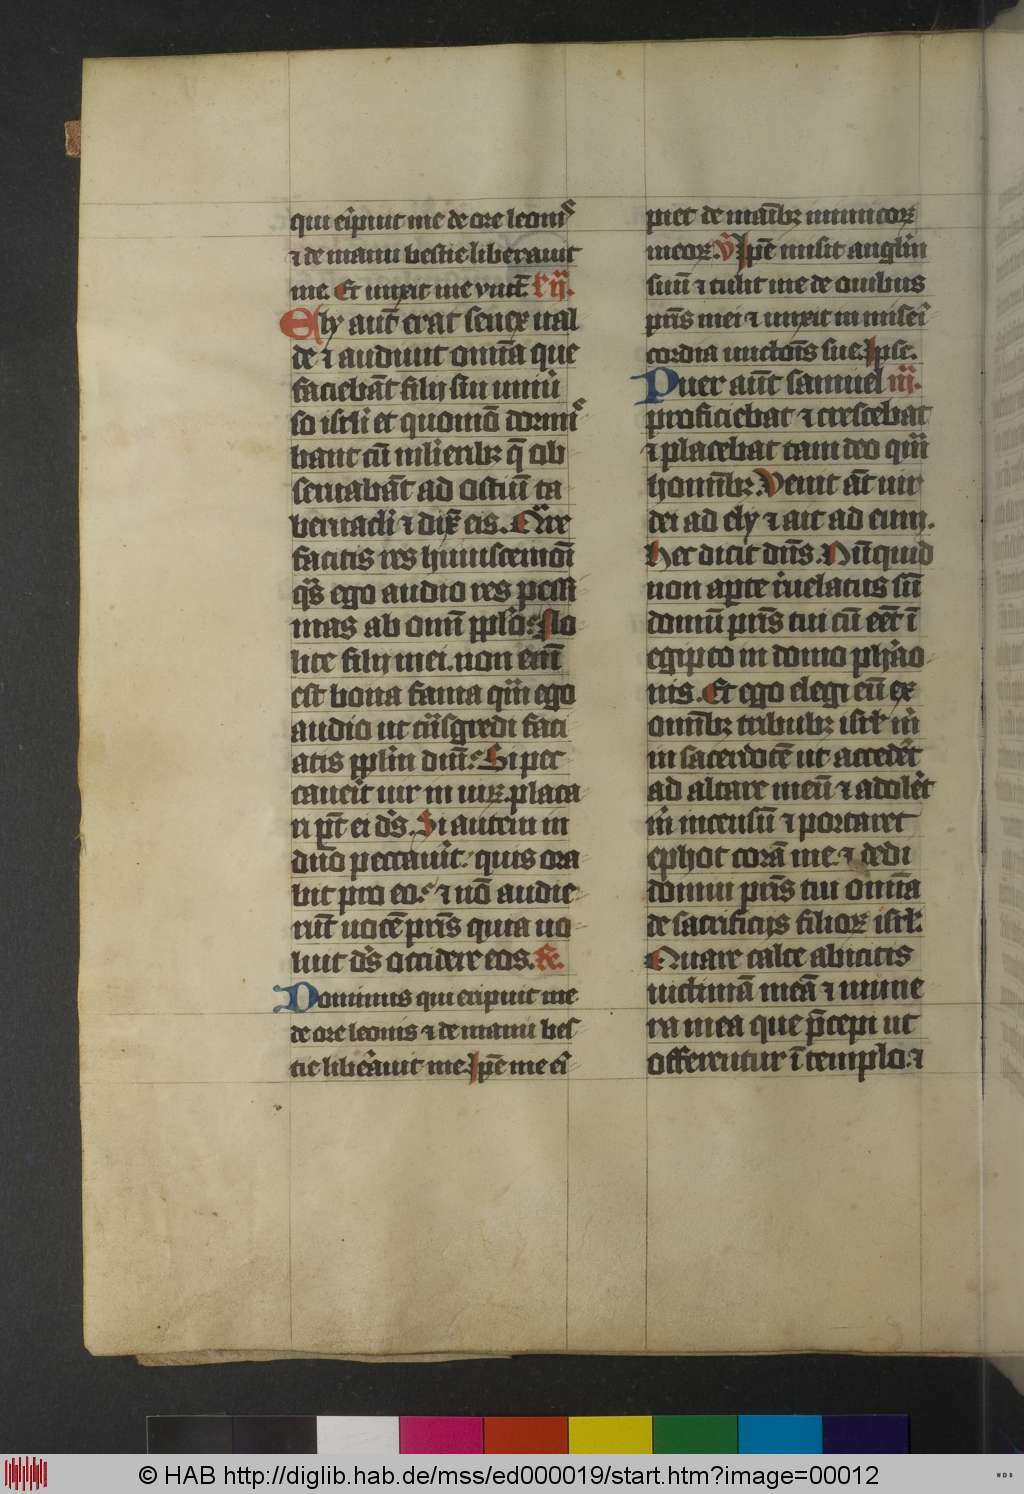 qui eꝛipuit me de ore leonis
⁊ de manu bestie liberauit
me. Et unxit me unct̄. lc̄ ij.
Ely aut̄ erat senex ual
de ⁊ audiuit om̄ia que
faciebāt filij sui uniu̍
so isrl̍i et quomō dormi
bant cū mlieribꝫ q̄ ob
seruabāt ad ostiū ta
bernacli ⁊ dix̄ eis. Qͣre
facitis res huiuscemōi
qͣs ego audio res pessi
mas ab omī pplo: No
lite filij mei. non em̄
est bona fama qͣm ego
audio ut tͣnsgredi faci
atis pplm̄ dnī. Si pec
cauerit uir in uirꝫ. placa
ri pt̄ ei ds̄. Si autem in
dn̄o peccauit̍. quis ora
bit pro eo. ⁊ nō audie
rūt uocē pr̄is quia uo
luit ds̄ occidere eos. R̄.
Dominus qui eripuit me
de ore leonis ⁊ de manu bes
tie liberauit me. Ip̄e me eri
piet de manibꝫ inimicoꝝ
meoꝝ. V̄ Ip̄e misit anglm̄
suū ⁊ tulit me de ouibus
pr̄is mei ⁊ unxit in miseri
cordia unctiōis sue. Ip̄se.
Puer aut̄ samuel iij.
proficiebat ⁊ crescebat
⁊ placebat tam deo qͣm
hominibꝫ. Venit āt uir
dei ad ely ⁊ ait ad eum.
Hec dicit dn̄s. Nūquid
non apte reuelatus sū
domui pr̄is tui cū eēt ī
egipto in domo phͣrao
nis. Et ego elegi eū ex
omībꝫ tribubꝫ isrl̄ m̍
in sacerdotē ut accedet̍
ad altare meū ⁊ adolet̍
m̍ incensū ⁊ portaret
ephot corā me. ⁊ dedi
domui pr̄is tui om̄ia
de sacrificijs filioꝝ isrl̄.
Quare calce abicitis
uictimā meā ⁊ mune
ra mea que p̄cepi ut
offerentur ī templo. ⁊
© HAB http://diglib.hab.de/mss/ed000019/start.htm?image=00012